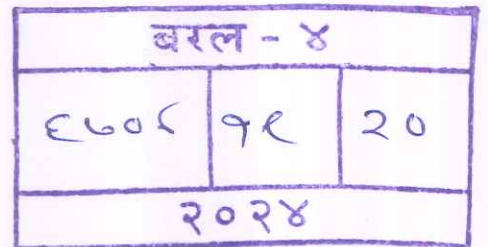 बरल - ४
६७०८ १९ २०
२०२४